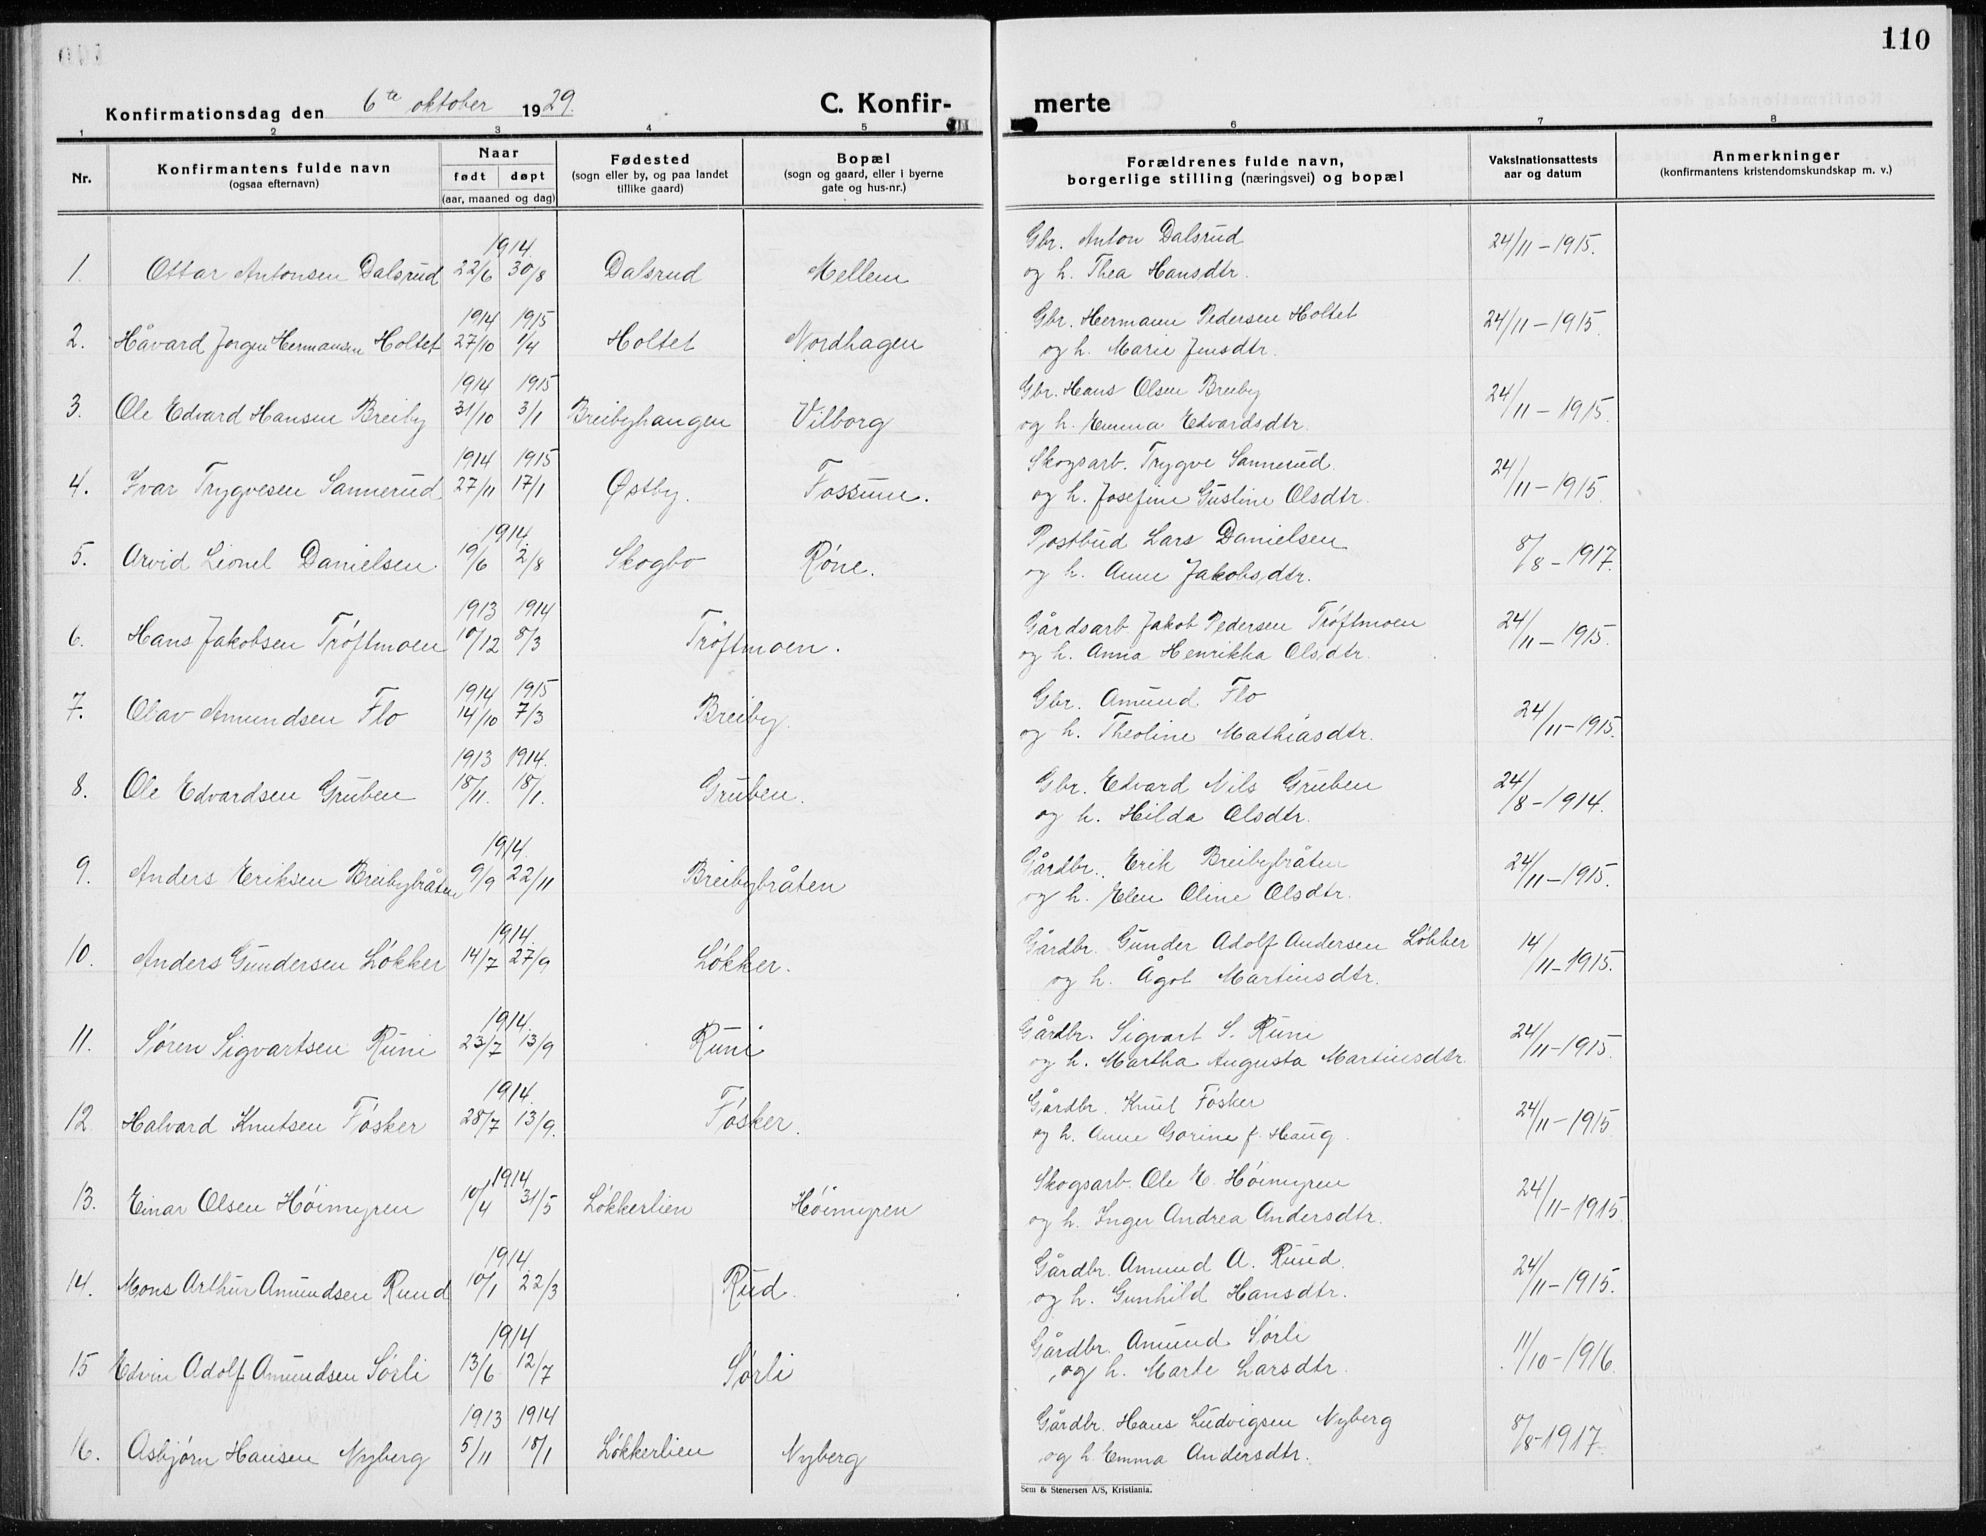 110
Konfirmationsdag den 6te oktober 1929.
C. Konfir-
merte
1 2 3 4 5 6 7 8
Nr.
Konfirmantens fulde navn
(ogsaa efternavn)
Naar
født døpt
(aar, maaned og dag)
Fødested
(sogn eller by, og paa landet
tillike gaard)
Bopæl
(sogn og gaard, eller i byerne
gate og hus-nr.)
Forældrenes fulde navn,
borgerlige stilling (næringsvei) og bopæl
Vaksinationsattests
aar og datum
Anmerkninger
(konfirmantens kristendomskundskap m. v.)
1914.
Gbr. Anton Dalsrud
1. Ottar Antonsen Dalsrud 22/6 30/8 Dalsrud Mellem 24/11-1915.
og h. Thea Hansdtr.
1914 1915
Gbr. Hermann Pedersen Holtet
2. Håvard Jørgen Hermansen Holtet 27/10 1/4 Holtet Nordhagen 24/11-1915.
og h. Marie Jensdtr.
1914 1915
Gbr. Hans Olsen Breiby
3. Ole Edvard Hansen Breiby 31/10 3/1 Breibyhaugen Vilborg 24/11-1915.
og h. Emma Edvardsdtr.
1914 1915
Skogsarb. Trygve Sannerud
4. Ivar Trygvesen Sannerud 27/11 17/1 Østby. Fossum. 24/11-1915.
og h. Josefine Gustine Olsdtr.
1914.
Postbud Lars Danielsen
5. Arvid Lionel Danielsen. 19/6 2/8 Skogbo Røne. 8/8-1917.
og h. Anne Jakobsdtr.
1913 1914
Gårdsarb Jakob Pedersen Trøftmoen
6. Hans Jakobsen Trøftmoen 10/12 8/3 Trøftmoen. 24/11-1915.
og h. Anna Henrikka Olsdtr.
1914 1915
Gbr. Amund Flo
7. Olav Amundsen Flo 14/10 7/3 Breiby. 24/11-1915.
og h. Theoline Mathiasdtr.
1913 1914.
Gbr. Edvard Nils Gruben
8. Ole Edvardsen Gruben 18/11. 18/1. Gruben. 24/8-1914.
og h. Hilda Olsdtr.
1914
Gårdbr. Erik Breibybråten
9. Anders Eriksen Breibybråten 9/9 22/11 Breibybråten 24/11-1915.
og h. Elen Oline Olsdtr.
1914.
Gårdbr. Gunder Adolf Andersen Løkker
10. Anders Gundersen Løkker 14/7 27/9 Løkker. 14/11-1915.
og h. Ågot Martinsdtr.
1914.
Gårdbr. Sigvart S. Runi
11. Søren Sigvartsen Runi 23/7 13/9 Runi 24/11-1915.
og h. Martha Augusta Martinsdtr.
1914.
Gårdbr. Knut Føsker
12. Halvard Knutsen Føsker 28/7 13/9. Føsker. 24/11-1915
og h. Anne Gorine f. Haug.
1914
Skogsarb. Ole E. Høimyren
13. Einar Olsen Høimyren 10/4 31/5 Løkkerlien Høimyren 24/11-1915.
og h. Inger Andrea Andersdtr.
1914.
Gårdbr. Amund A. Ruud.
14. Mons Arthur Amundsen Ruud 10/1 22/3 Rud. 24/11-1915.
og h. Gunhild Hansdtr.
1914
Gårdbr. Amund Sørli
15 Edvin Adolf Amundsen Sørli 13/6 12/7 Sørli 11/10-1916.
og h. Marte Larsdtr.
1913 1914
Gårdbr. Hans Ludvigsen Nyberg
16. Asbjørn Hansen Nyberg 5/11 18/1 Løkkerlien Nyberg 8/8-1917.
og h. Emma Andersdtr.
Sem & Stenersen A/S, Kristiania.